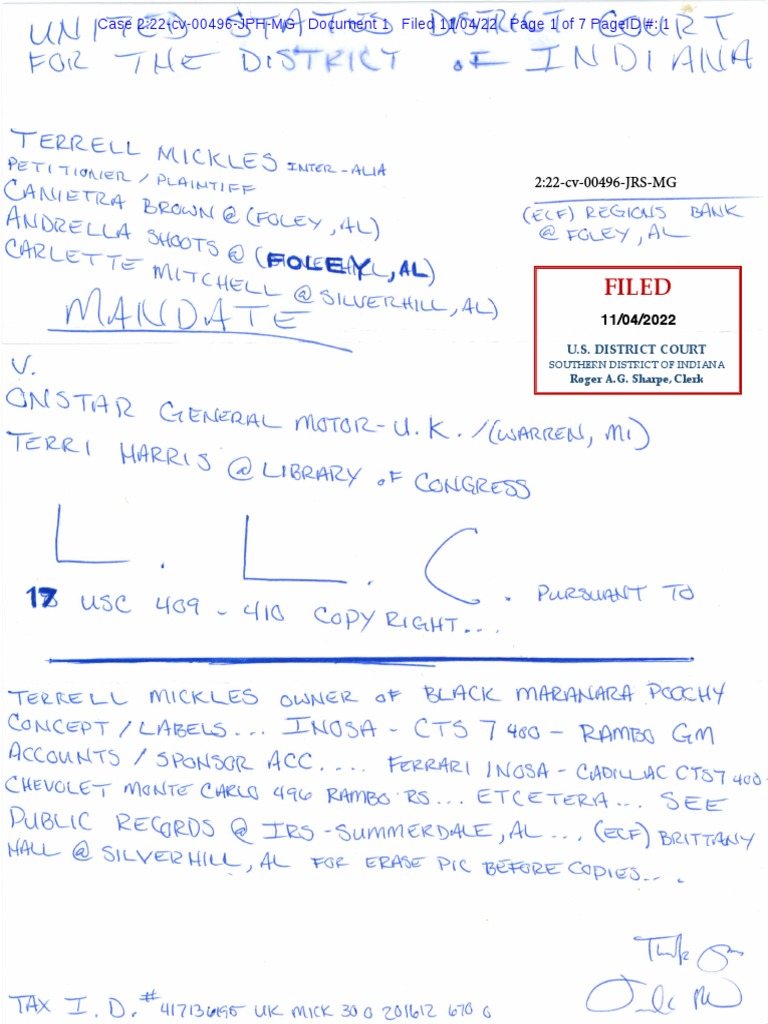 Case 2:22-cv-00496-JPH-MG Document 1 Filed 11/04/22 Page 1 of 7 PageID #: 1
UNITED STATES DISTRICT COURT
FOR THE DISTRICT OF INDIANA
TERRELL MICKLES INTER-ALIA
PETITIONER / PLAINTIFF
CANIETRA BROWN @ (FOLEY, AL)
ANDRELLA SHOOTS @ (FOLEY, AL)
CARLETTE MITCHELL @ SILVERHILL, AL)
MANDATE
2:22-cv-00496-JRS-MG
(ECF) REGIONS BANK
@ FOLEY, AL
FILED
11/04/2022
U.S. DISTRICT COURT
SOUTHERN DISTRICT OF INDIANA
Roger A.G. Sharpe, Clerk
V.
ONSTAR GENERAL MOTOR-U.K./(WARREN, MI)
TERRI HARRIS @ LIBRARY OF CONGRESS
L. L. C. PURSUANT TO
17 USC 409 - 410 COPYRIGHT...
TERRELL MICKLES OWNER OF BLACK MARANARA POOCHY
CONCEPT / LABELS... INOSA - CTS 7 400 - RAMBO GM
ACCOUNTS / SPONSOR ACC.... FERRARI INOSA - CADILLAC CTS7 400-
CHEVOLET MONTE CARLO 496 RAMBO RS... ETCETERA... SEE
PUBLIC RECORDS @ IRS - SUMMERDALE, AL... (ECF) BRITTANY
HALL @ SILVERHILL, AL FOR ERASE PIC BEFORE COPIES....
Thank You
TAX I.D. # UK MICK 30 0 201612 670 0